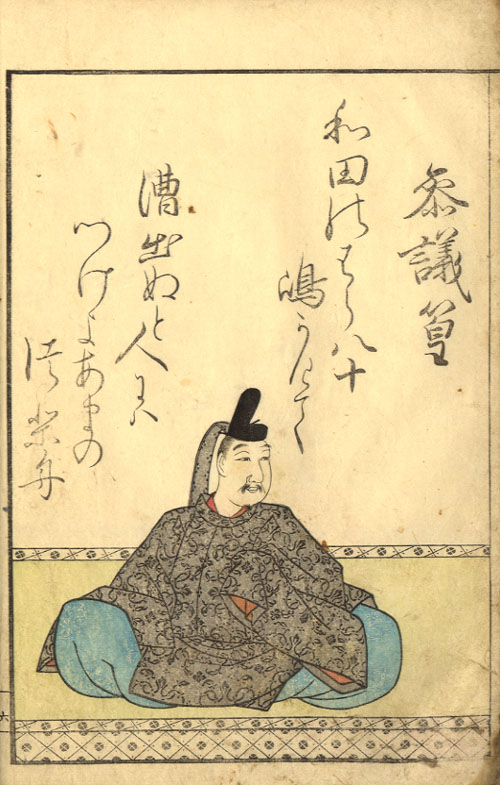 参議篁
和田のはら八十
嶋かけて
漕出ぬと人には
つげよあまの
つり舟
一六